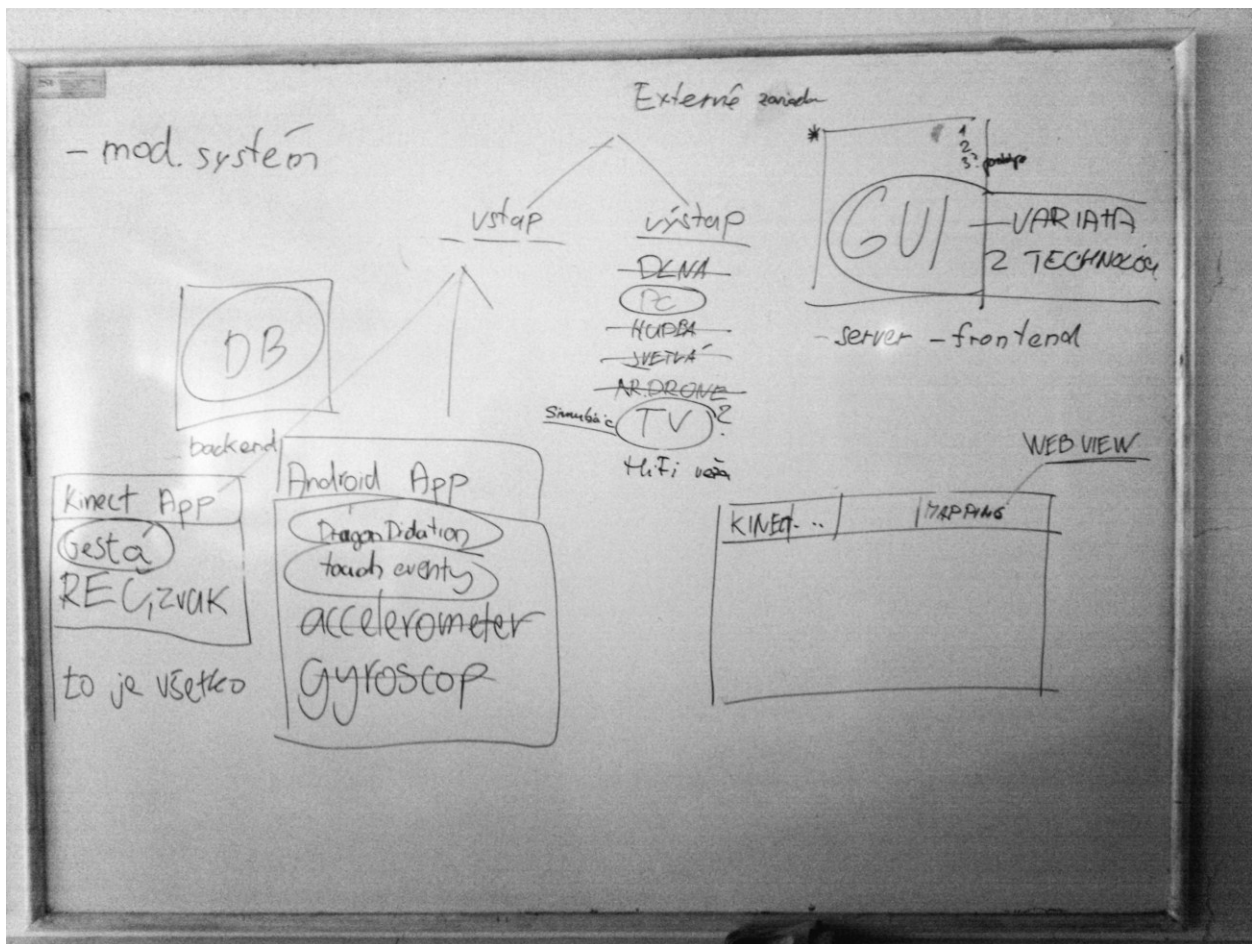 Externé
- mod. systém
vstup
výstup
DLNA
PC
HUDBA
SVETLÁ
AR.DRONE
TV ?
HiFi veža
1
2
3?
GUI
- VARIATA
2 TECHNOLÓG
- server - frontend
DB
backend
Kinect App
Gestá
REČ, zvuk
to je všetko
Android App
Dragon Didation
touch eventy
accelerometer
Gyroscop
WEB VIEW
KINECT..
MAPPING